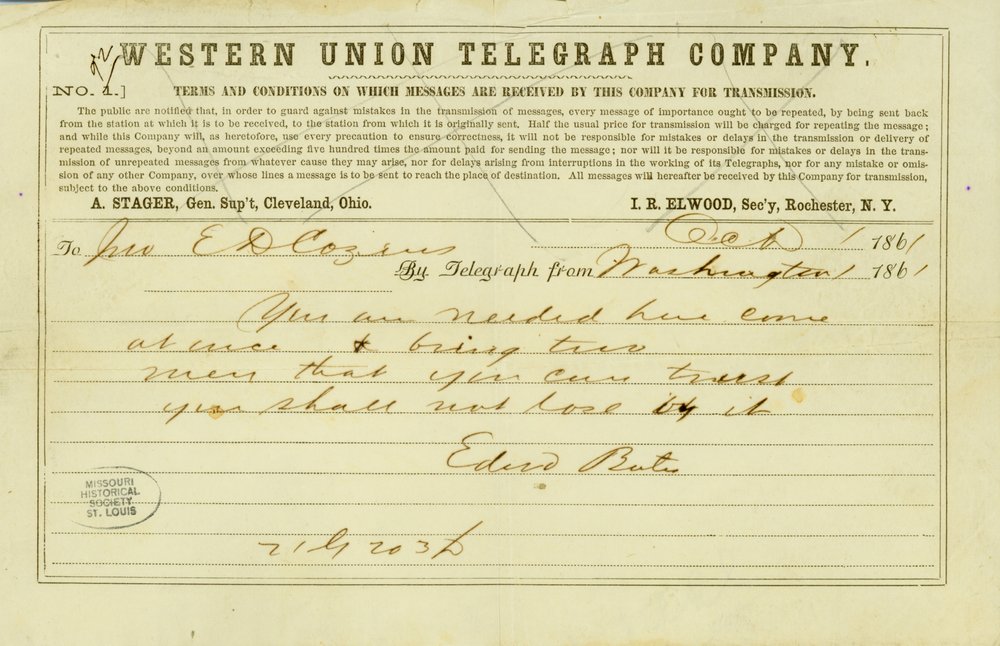 WESTERN UNION TELEGRAPH COMPANY.
NO. 1.]
TERMS AND CONDITIONS ON WHICH MESSAGES ARE RECEIVED BY THIS COMPANY FOR TRANSMISSION.
The public are notified that, in order to guard against mistakes in the transmission of messages, every message of importance ought to be repeated, by being sent back
from the station at which it is to be received, to the station from which it is originally sent. Half the usual price for transmission will be charged for repeating the message;
and while this Company will, as heretofore, use every precaution to ensure correctness, it will not be responsible for mistakes or delays in the transmission or delivery of
repeated messages, beyond an amount exceeding five hundred times the amount paid for sending the message; nor will it be responsible for mistakes or delays in the trans-
mission of unrepeated messages from whatever cause they may arise, nor for delays arising from interruptions in the working of its Telegraphs, nor for any mistake or omis-
sion of any other Company, over whose lines a message is to be sent to reach the place of destination. All messages will hereafter be received by this Company for transmission,
subject to the above conditions.
A. STAGER, Gen. Sup't, Cleveland, Ohio. I. R. ELWOOD, Sec'y, Rochester, N. Y.
Oct 1 1861
To Jno E D Cozens
By Telegraph from Washington 1 1861
You are needed here come
at once & bring two
men that you can trust
you shall not lose by it
Edwd Bates
MISSOURI
HISTORICAL
SOCIETY
ST. LOUIS